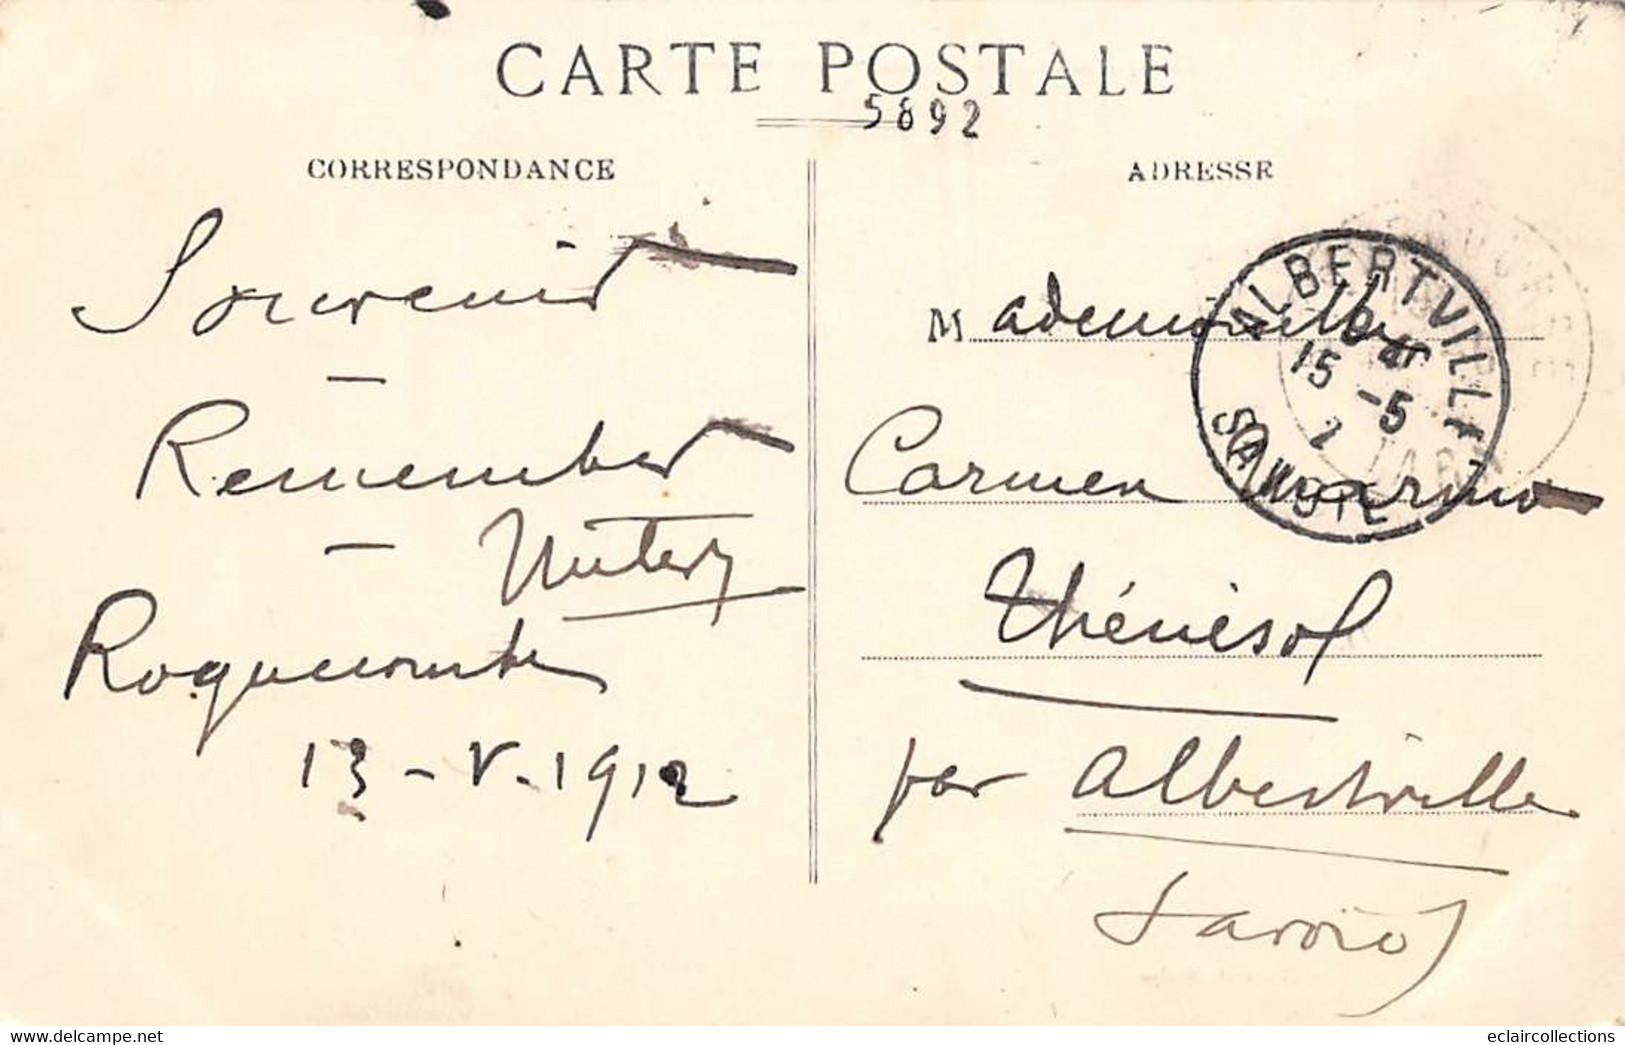 CARTE POSTALE
5892
CORRESPONDANCE
Souvenir
Remember
Roquecourbe
13-V-1912
ADRESSE
Mademoiselle
Carmen
Thénésol
par Albertville
Savoie
ALBERTVILLE
15 -5
SAVOIE
TARN
eclaircollections
www.delcampe.net